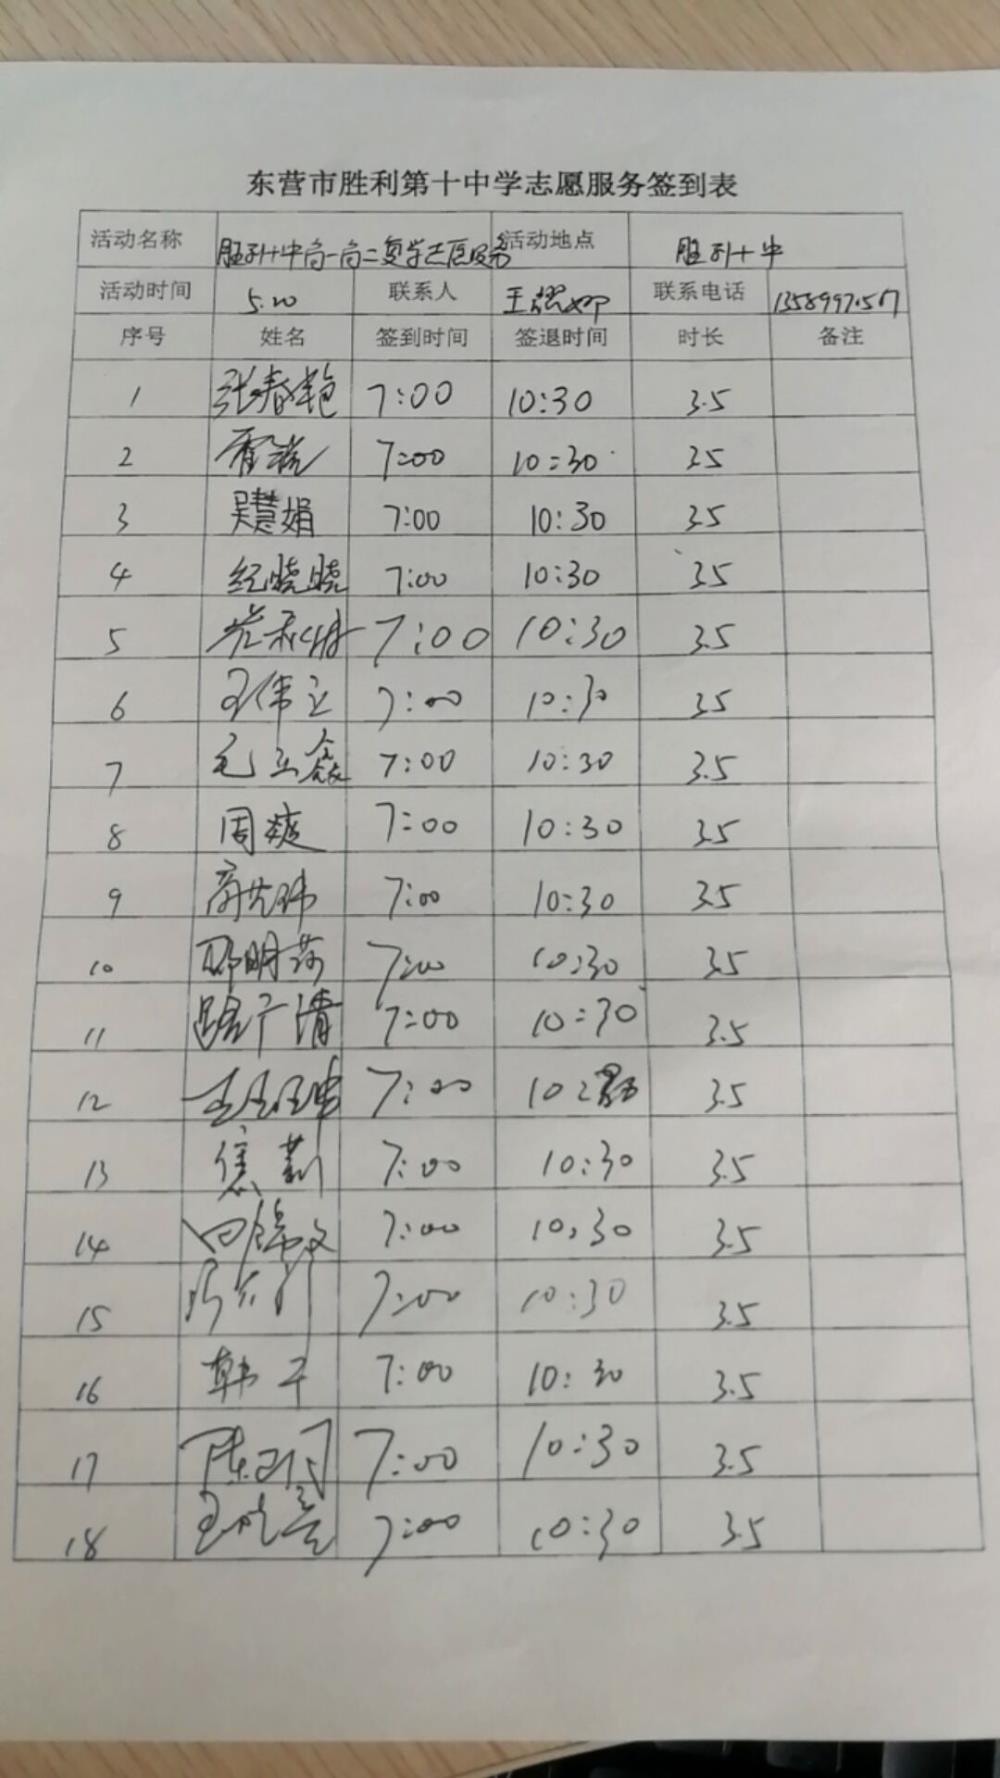 东营市胜利第十中学志愿服务签到表
活动名称 胜利十中高一高二复学志愿服务 活动地点 胜利十中
活动时间 5.20 联系人 王 联系电话
序号 姓名 签到时间 签退时间 时长 备注
1 张春艳 7:00 10:30 3.5
2 霍 7:00 10:30 3.5
3 吴慧娟 7:00 10:30 3.5
4 纪晓晓 7:00 10:30 3.5
5 7:00 10:30 3.5
6 王伟立 7:00 10:30 3.5
7 毛玉鑫 7:00 10:30 3.5
8 周爽 7:00 10:30 3.5
9 高先伟 7:00 10:30 3.5
10 邵明莉 7:00 10:30 3.5
11 路广清 7:00 10:30 3.5
12 7:00 10:30 3.5
13 焦莉 7:00 10:30 3.5
14 7:00 10:30 3.5
15 7:00 10:30 3.5
16 韩平 7:00 10:30 3.5
17 陈 7:00 10:30 3.5
18 王晓亮 7:00 10:30 3.5